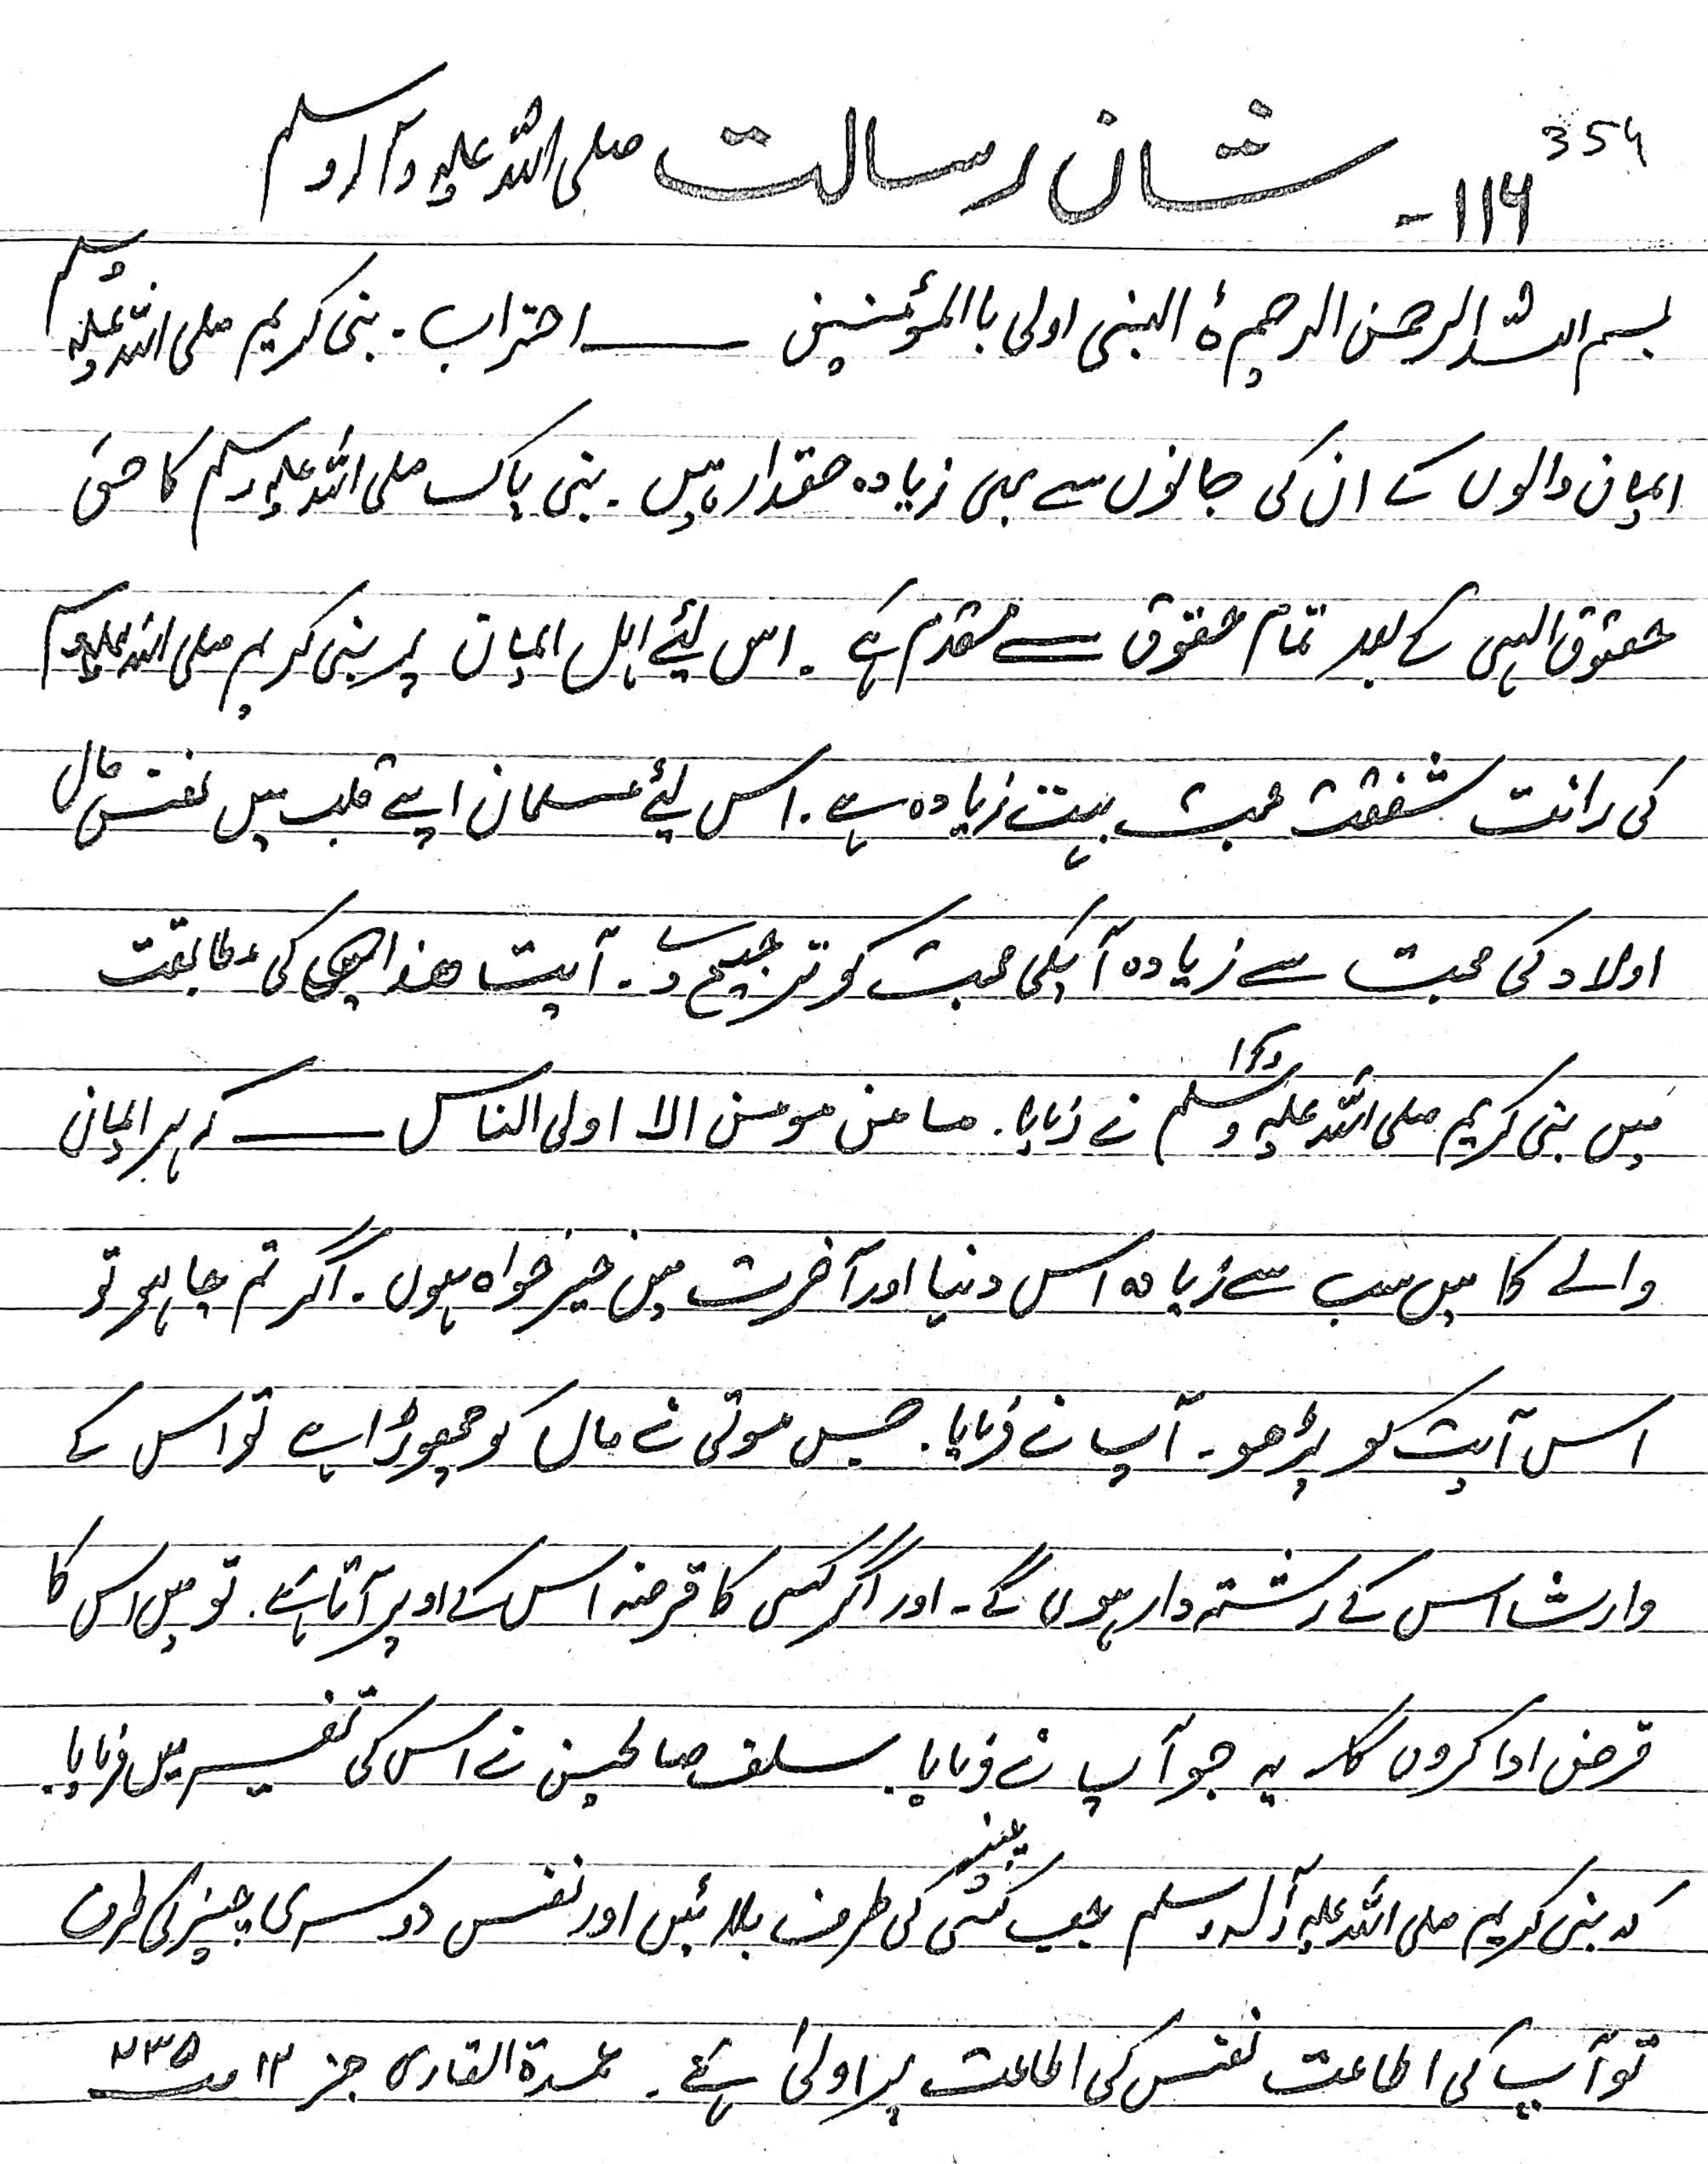 354
۱۱۶- شان رسالت صلی اللہ علیہ وآلہ وسلم
بسم اللہ الرحمن الرحیم ۀ النبی اولی باالمؤمنین ــــــ احزاب ۔ نبی کریم صلی اللہ علیہ وسلم
ایمان والوں کے ان کی جانوں سے بھی زیادہ حقدار ہیں ۔ نبی پاک صلی اللہ علیہ وسلم کا حق
حقوق الہی کے بعد تمام حقوق سے مقدم ہے ۔ اس لئے اہل ایمان پر نبی کریم صلی اللہ علیہ وسلم
کی رافت شفقت محبت بہت زیادہ ہے ۔ اس لئے مسلمان اپنے قلب میں نفس مال
اولاد کی محبت سے زیادہ آپکی محبت کو ترجیح دے ۔ آیت ھذا کی مطابقت
میں نبی کریم صلی اللہ علیہ وسلم نے فرمایا ۔ ما من مومن الا اولی الناس ــــــ کہ ہر ایمان
والے کا میں سب سے زیادہ اس دنیا اور آخرت میں خیر خواہ ہوں ۔ اگر تم چاہو تو
اس آیت کو پڑھو ۔ آپ نے فرمایا ۔ جس موتی نے مال کو چھوڑا ہے تو اس کے
وارث اس کے رشتہ دار ہوں گے ۔ اور اگر کسی کا قرضہ اس کے اوپر آتا ہے ۔ تو میں اس کا
قرض ادا کروں گا۔ یہ جو آپ نے فرمایا ۔ سلف صالحین نے اس کی تفسیر میں فرمایا ۔
کہ نبی کریم صلی اللہ علیہ وآلہ وسلم جب کسی کی طرف بلائیں اور نفس دوسری چیز کی طرف
تو آپ کی اطاعت نفس کی اطاعت پر اولیٰ ہے ۔ عمدۃ القاری جز ۱۲ صـ ۲۳۵